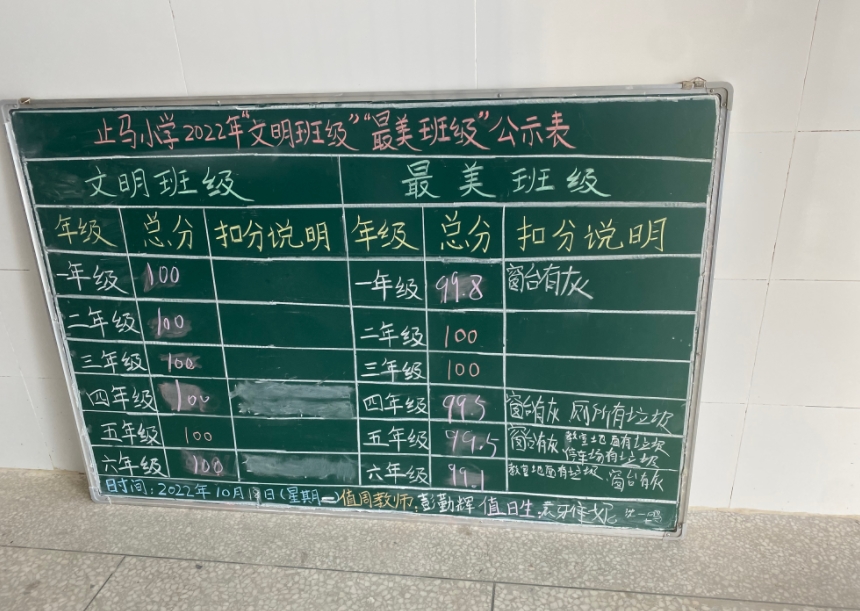 止马小学2022年“文明班级”“最美班级”公示表
文明班级 最美班级
年级 总分 扣分说明 年级 总分 扣分说明
一年级 100 一年级 99.8 窗台有灰
二年级 100 二年级 100
三年级 100 三年级 100
四年级 100 四年级 99.5 窗台有灰 厕所有垃圾
五年级 100 五年级 99.5 窗台有灰 教室地面有垃圾
停车场有垃圾
六年级 100 六年级 99.1 教室地面有垃圾 窗台有灰
日时间:2022年10月 日(星期一 值周教师:彭勤辉 值日生: